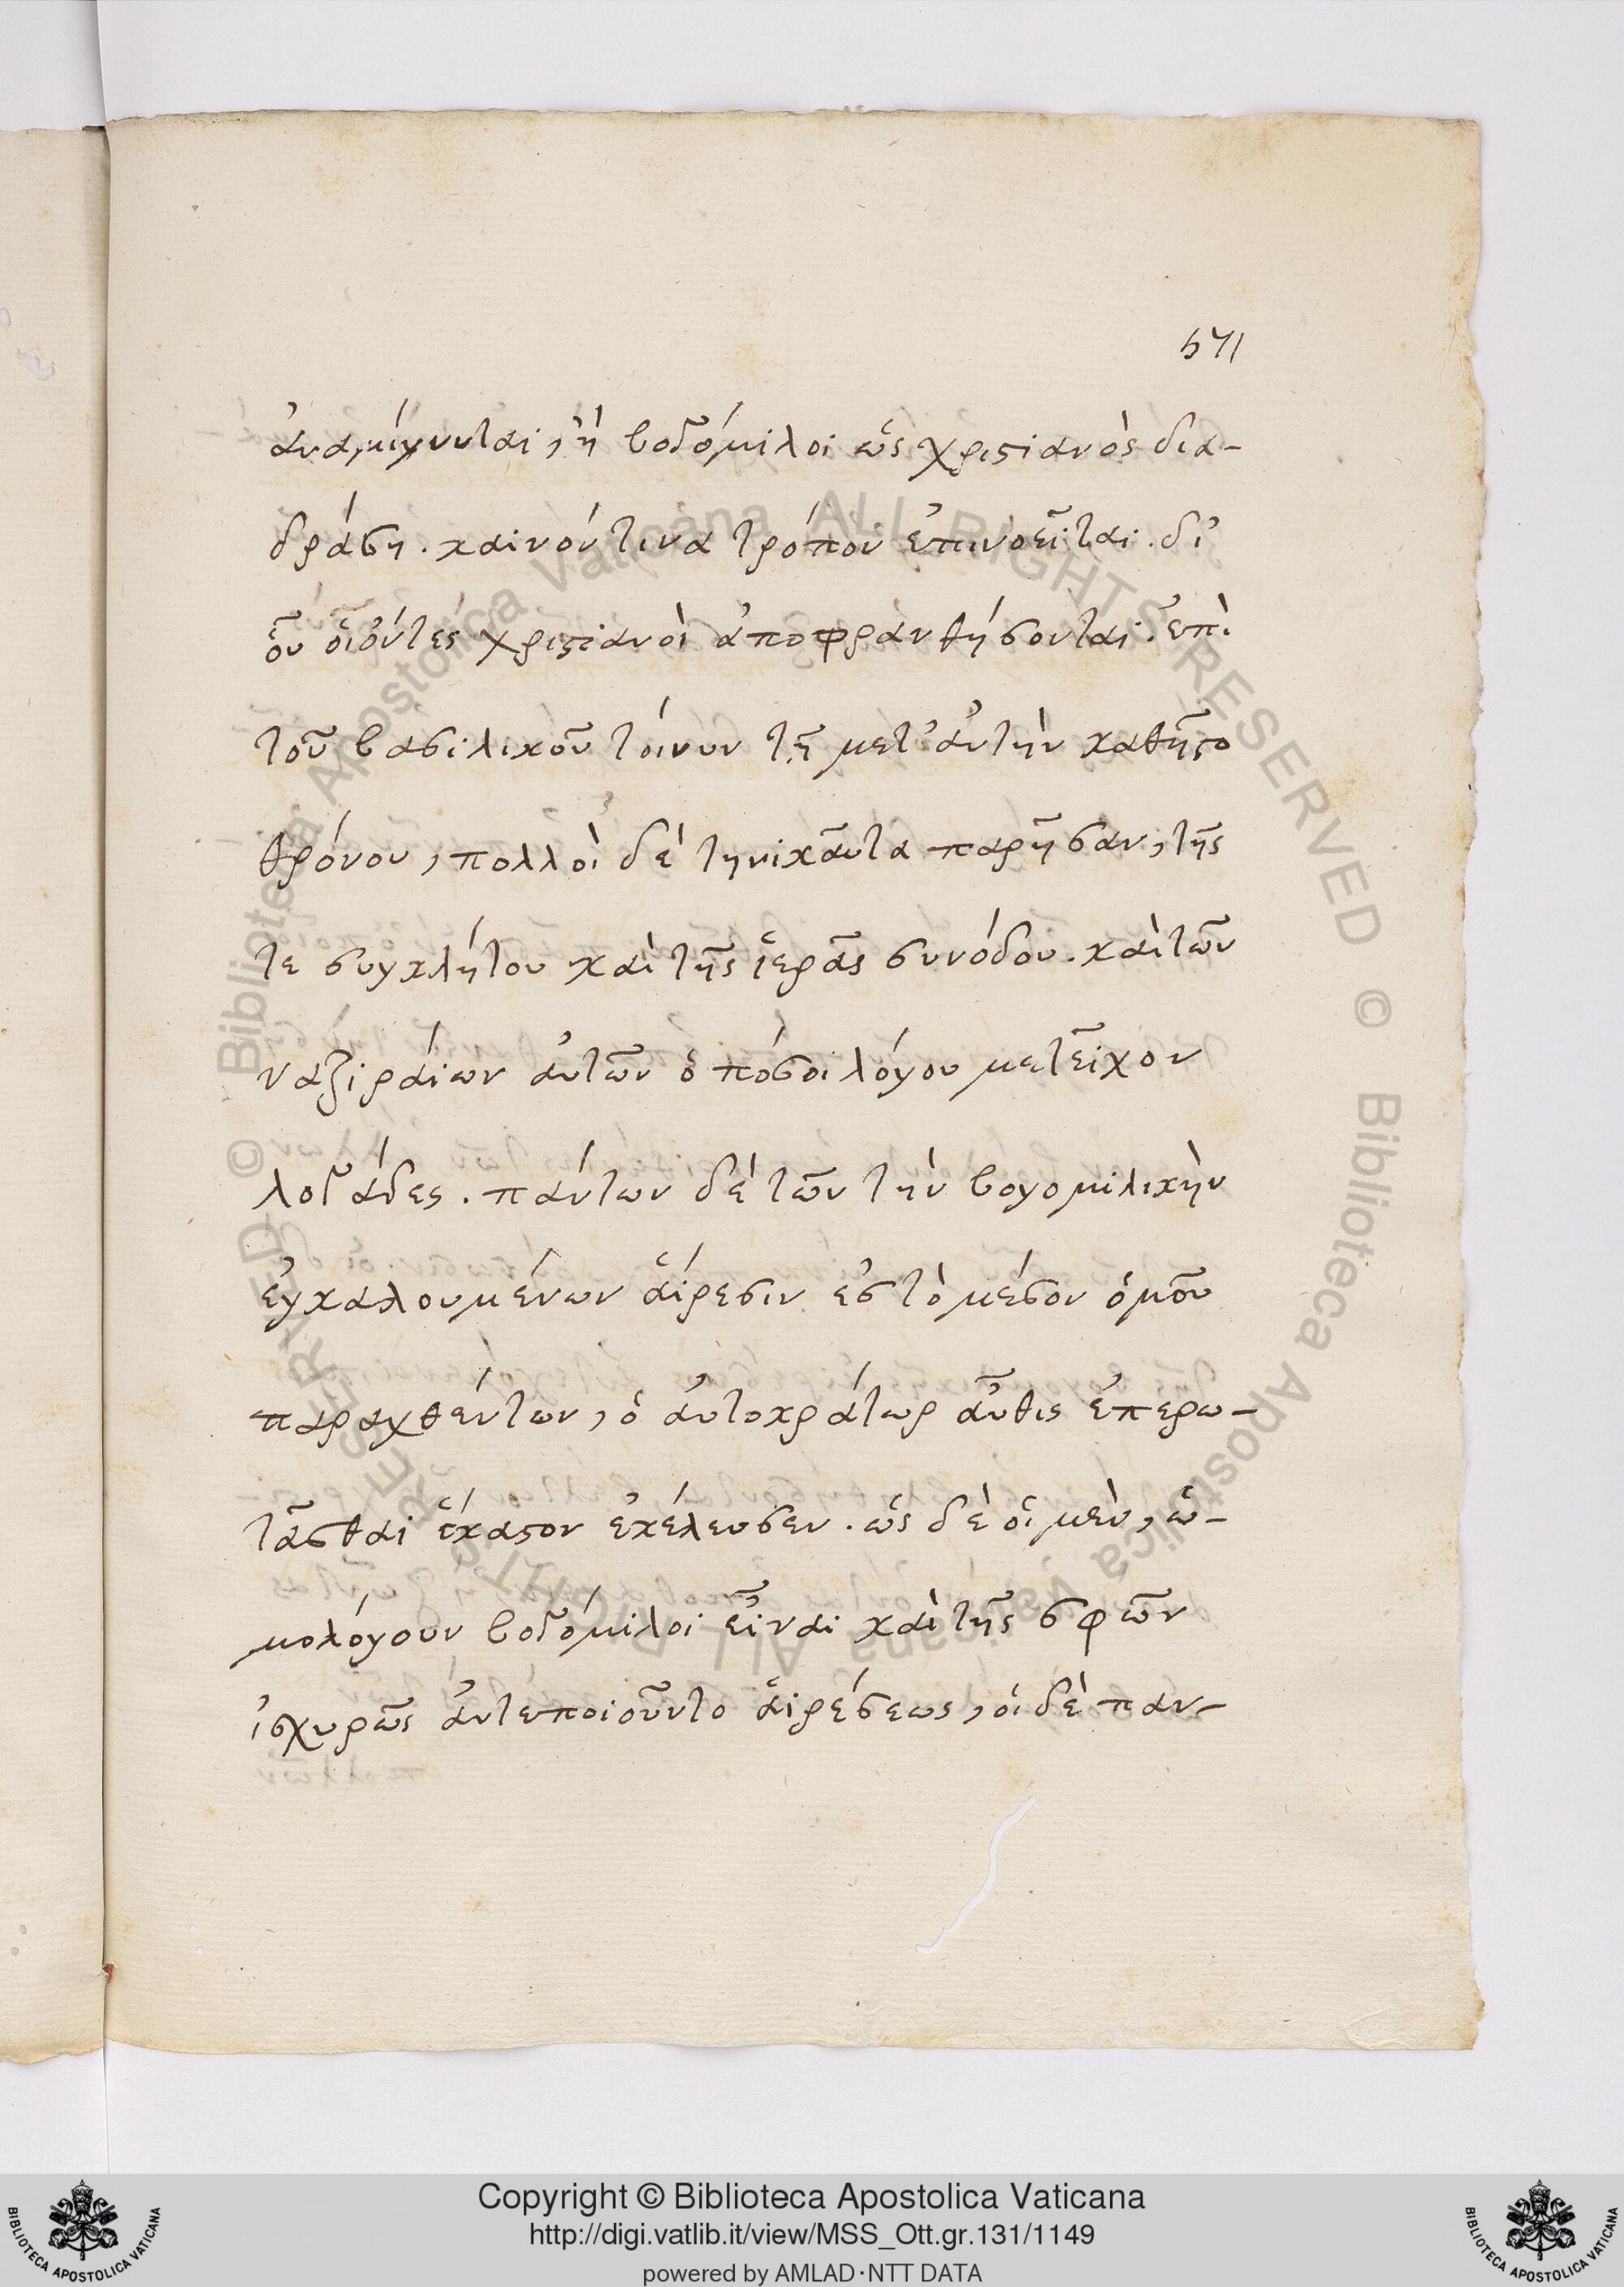 571
ἀναμίγνυνται, ἢ βογόμιλοι ὡς χριστιανὸς δια-
δράση. καινόν τινα τρόπον ἐπινοεῖται. δι'
οὗ οἱ ὄντες χριστιανοὶ ἀποφρανθήσονται. ἐπὶ
τοῦ βασιλικοῦ τοίνυν τῇ μετ' ἀυτὴν καθῆστο
θρόνου, πολλοὶ δὲ τηνικᾶυτα παρῆσαν, τῆς
τε συγκλήτου καὶ τῆς ἱερᾶς συνόδου. καὶ τῶν
ναζιράιων ἀυτῶν ὁπόσοι λόγου μετεῖχον
λογάδες. πάντων δὲ τῶν τὴν βογομιλικὴν
ἐγκαλουμένων ἅιρεσιν ἐσ τὸ μέσον ὁμοῦ
παραχθέντων, ὁ ἀυτοκράτωρ ἆυθις ἐπερω-
τᾶσθαι ἕκαστον ἐκέλευσεν. ὡς δὲ οἱ μὲν, ὡ-
μολόγουν βογόμιλοι εἶναι καὶ τῆς σφῶν
ἰσχυρῶς ἀντεποιοῦντο ἁιρέσεως, οἱ δὲ παν-
Copyright © Biblioteca Apostolica Vaticana
http://digi.vatlib.it/view/MSS_Ott.gr.131/1149
powered by AMLAD·NTT DATA